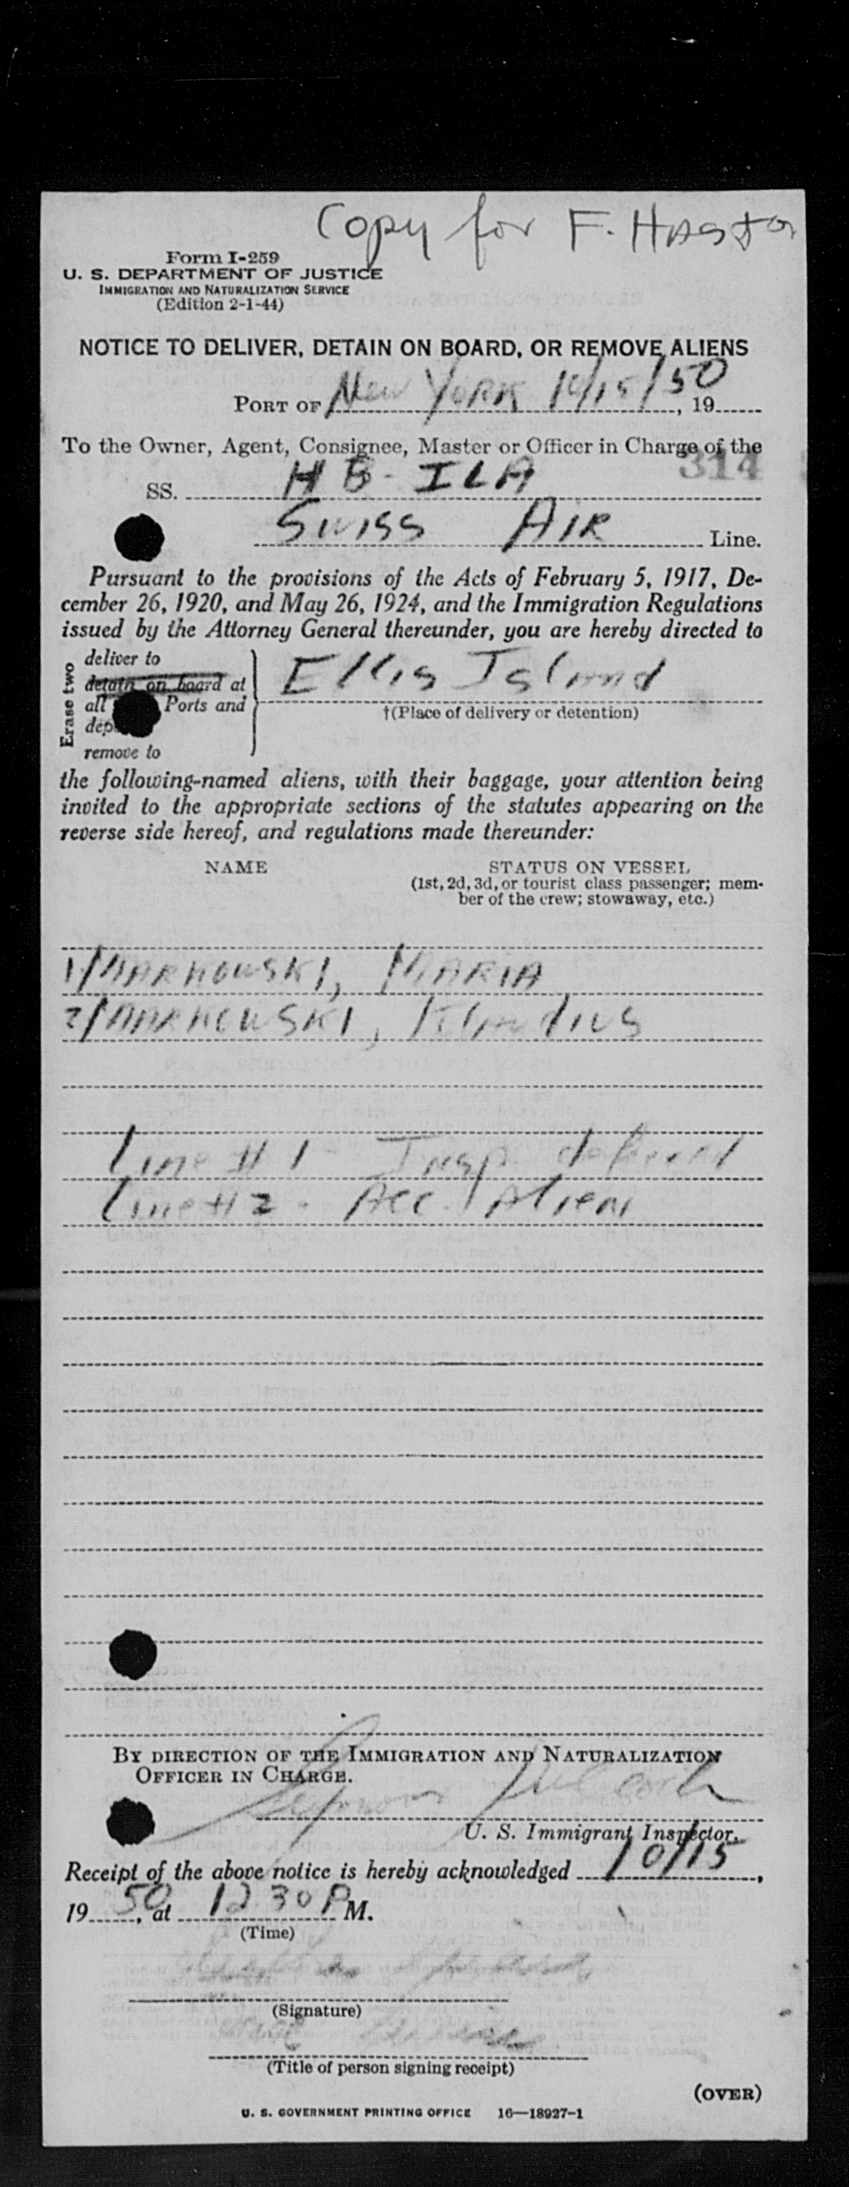 Copy for F.
Form I-259
U. S. DEPARTMENT OF JUSTICE
IMMIGRATION AND NATURALIZATION SERVICE
(Edition 2-1-44)
NOTICE TO DELIVER, DETAIN ON BOARD, OR REMOVE ALIENS
PORT OF New York 10/15/50, 19
To the Owner, Agent, Consignee, Master or Officer in Charge of the
314
SS. HB-ILA
Swiss Air Line.
Pursuant to the provisions of the Acts of February 5, 1917, De-
cember 26, 1920, and May 26, 1924, and the Immigration Regulations
issued by the Attorney General thereunder, you are hereby directed to
Erase two
deliver to
detain on board at Ellis Island
all Ports and
†(Place of delivery or detention)
remove to
the following-named aliens, with their baggage, your attention being
invited to the appropriate sections of the statutes appearing on the
reverse side hereof, and regulations made thereunder:
NAME STATUS ON VESSEL
(1st, 2d, 3d, or tourist class passenger; mem-
ber of the crew; stowaway, etc.)
1/MARKOWSKI, MARIA
2/MARKOWSKI, Klaudius
Line #1 - Insp. deferred
Line #2 - Acc. Alien
BY DIRECTION OF THE IMMIGRATION AND NATURALIZATION
OFFICER IN CHARGE.
Seymour
U. S. Immigrant Inspector.
Receipt of the above notice is hereby acknowledged 10/15,
19 50, at 12 30 P M.
(Time)
(Signature)
(Title of person signing receipt)
(OVER)
U. S. GOVERNMENT PRINTING OFFICE 16—18927-1